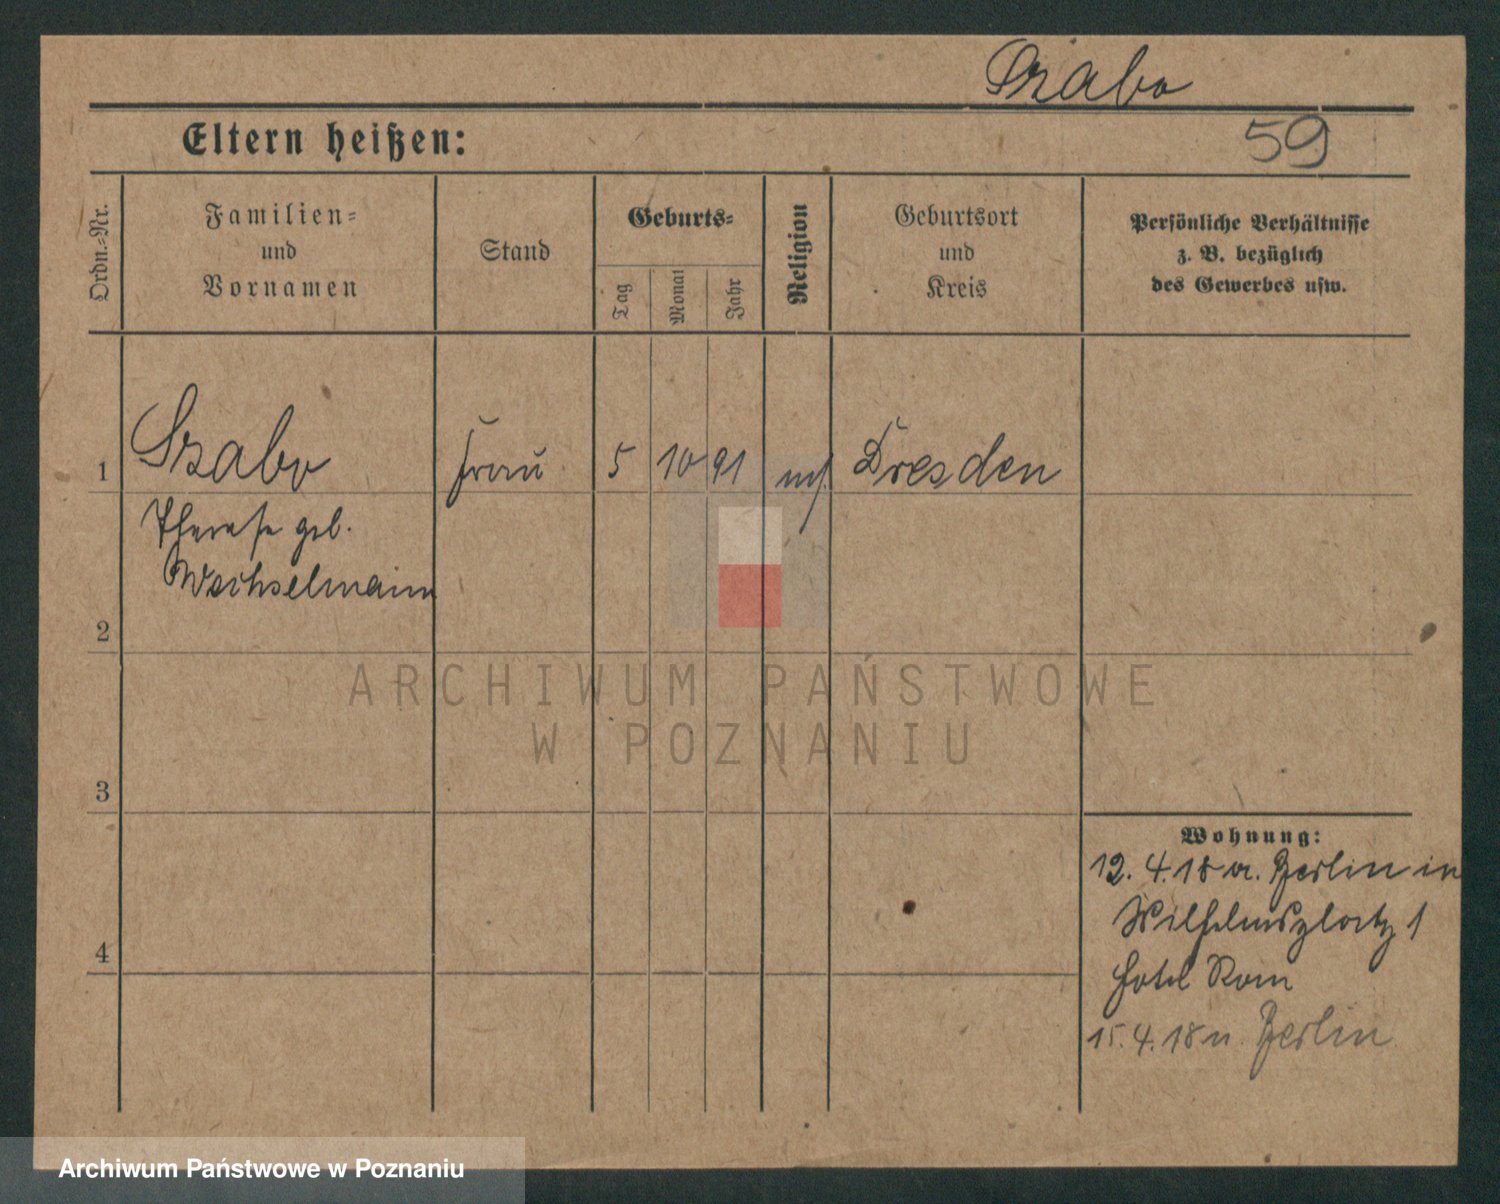 Szabo
59
Eltern heißen:
Ordn.-Nr.
Familien-
und
Vornamen
Stand
Geburts-
Tag
Monat
Jahr
Religion
Geburtsort
und
Kreis
Persönliche Verhältnisse
z. B. bezüglich
des Gewerbes usw.
1 Szabo Frau 5 10 91 Dresden
Therese geb.
Wechselmann
2
3
4
ARCHIWUM PAŃSTWOWE
W POZNANIU
Wohnung:
12. 4. 18 v. Berlin in
Wilhelmsplatz 1
Hotel Rom
15. 4. 18 n. Berlin
Archiwum Państwowe w Poznaniu